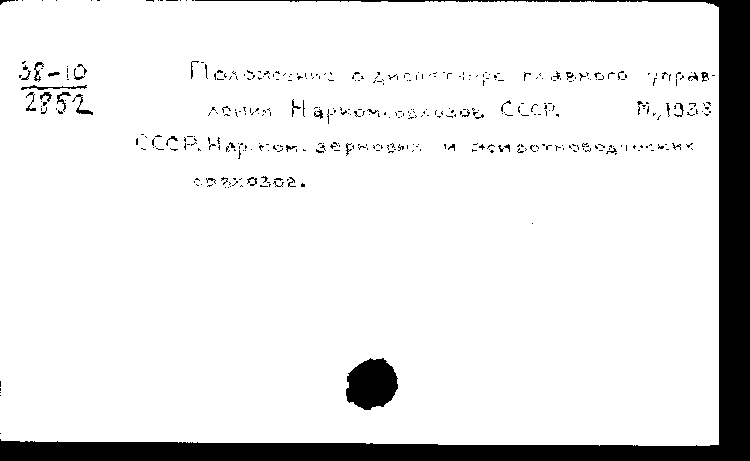 38-10
2852
Положение о диспетчере главного управ-
ления Наркомсовхозов СССР. М., 1938
СССР. Нар. ком. зерновых и животноводческих
совхозов.